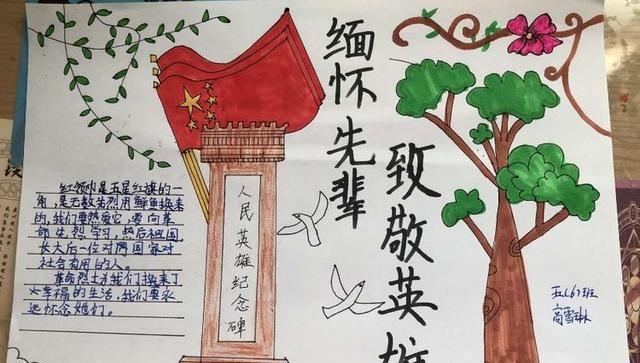 缅怀先辈
致敬英雄
红领巾是五星红旗的一
角,是无数先烈用鲜血换来
的,我们要热爱它,要向革
命先烈学习,热爱祖国
长大后一位对国家对
社会有用的人。
革命烈士为我们换来了
幸福的生活,我们要永
远怀念她们。
人民英雄纪念碑
五(6)班
高雪琳